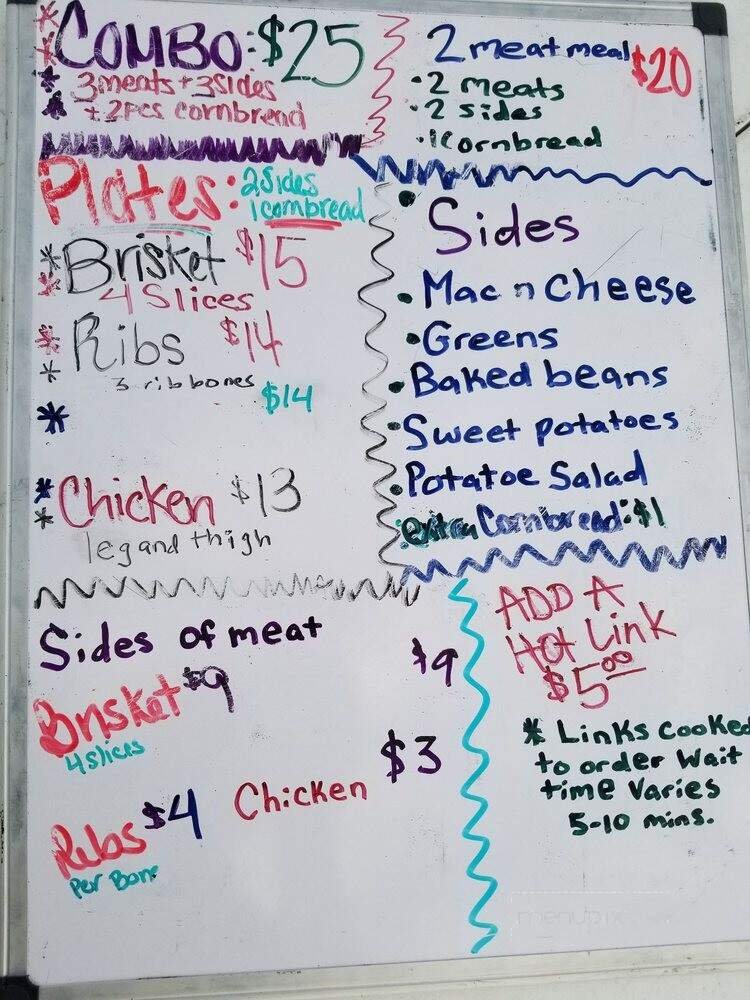 COMBO: $25
3meats + 3sides
+ 2pcs cornbread
2 meat meal $20
• 2 meats
• 2 sides
• 1cornbread
Plates: 2Sides
1cornbread
* Brisket $15
4 Slices
* Ribs $14
3 rib bones
$14
* Chicken $13
leg and thigh
Sides
• Mac n Cheese
• Greens
• Baked beans
• Sweet potatoes
• Potatoe Salad
• extra Cornbread: $1
Sides of meat
$9
Brisket $9
4 slices
$3
Chicken
Ribs $4
Per Bone
ADD A
Hot Link
$5.00
* Links cooked
to order Wait
time varies
5-10 mins.
menupix